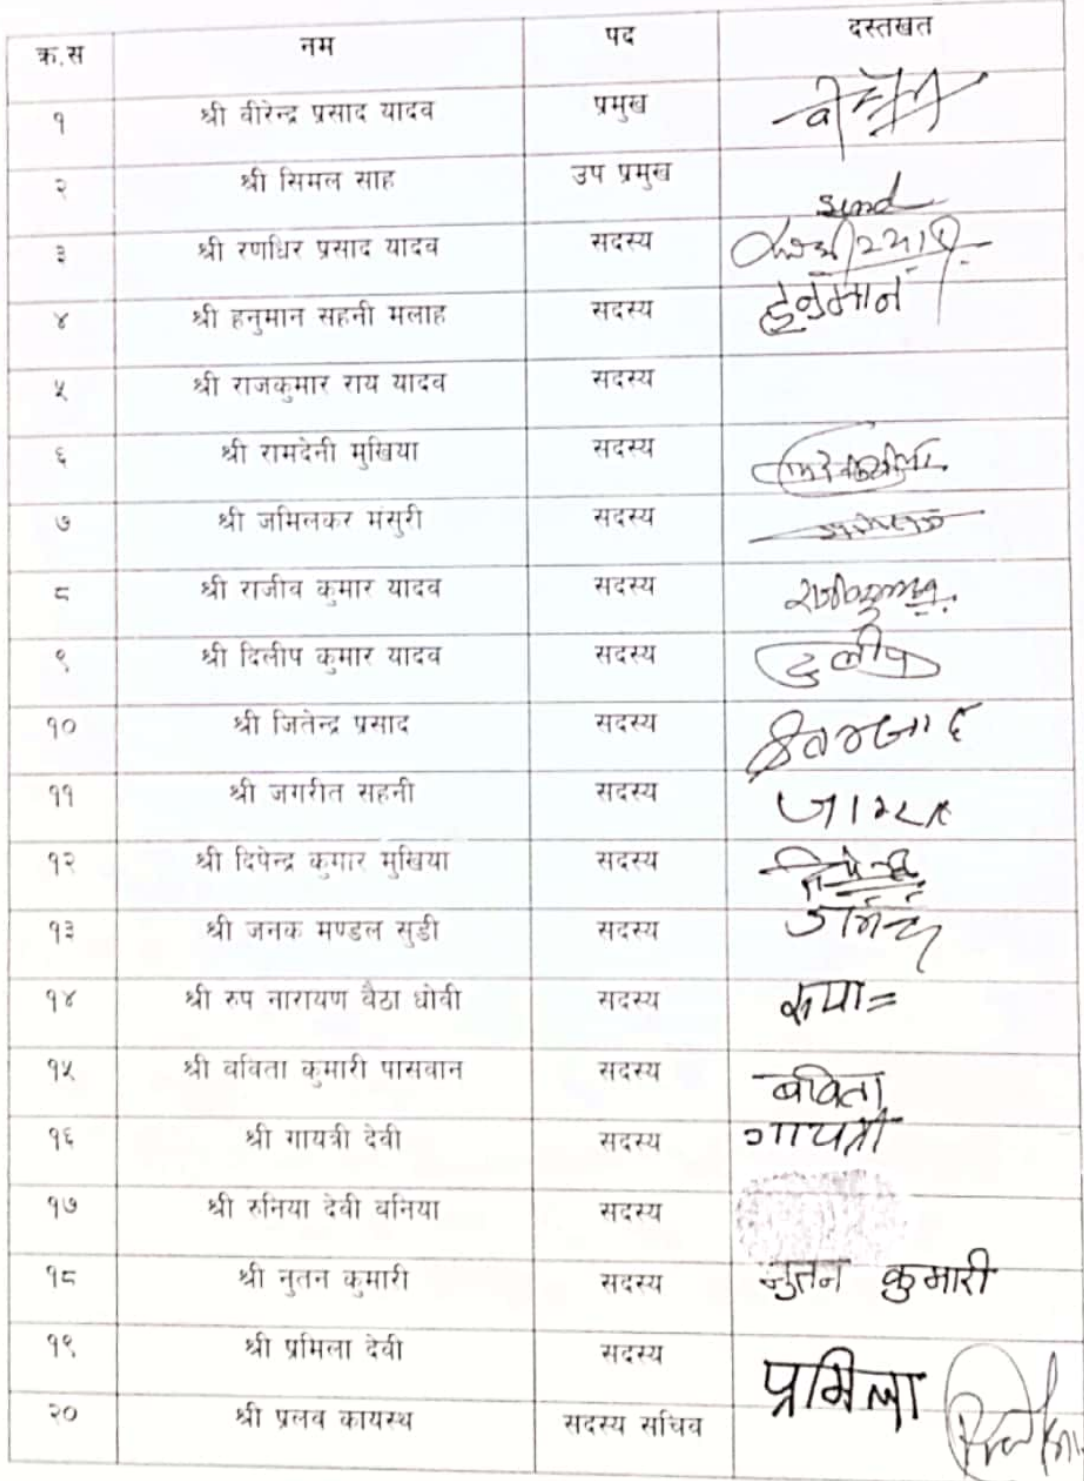 क्र.स नम पद दस्तखत
१ श्री वीरेन्द्र प्रसाद यादव प्रमुख
२ श्री सिमल साह उप प्रमुख
३ श्री रणधिर प्रसाद यादव सदस्य
४ श्री हनुमान सहनी मलाह सदस्य हनुमान
५ श्री राजकुमार राय यादव सदस्य
६ श्री रामदेनी मुखिया सदस्य
७ श्री जमिलकर मंसुरी सदस्य
८ श्री राजीव कुमार यादव सदस्य
९ श्री दिलीप कुमार यादव सदस्य
१० श्री जितेन्द्र प्रसाद सदस्य
११ श्री जगरीत सहनी सदस्य
१२ श्री दिपेन्द्र कुमार मुखिया सदस्य
१३ श्री जनक मण्डल सुडी सदस्य
१४ श्री रुप नारायण बैठा धोवी सदस्य
१५ श्री वविता कुमारी पासवान सदस्य बबिता
१६ श्री गायत्री देवी सदस्य गायत्री
१७ श्री रुनिया देवी वनिया सदस्य
१८ श्री नुतन कुमारी सदस्य नुतन कुमारी
१९ श्री प्रमिला देवी सदस्य प्रमिला
२० श्री प्रलव कायस्थ सदस्य सचिव